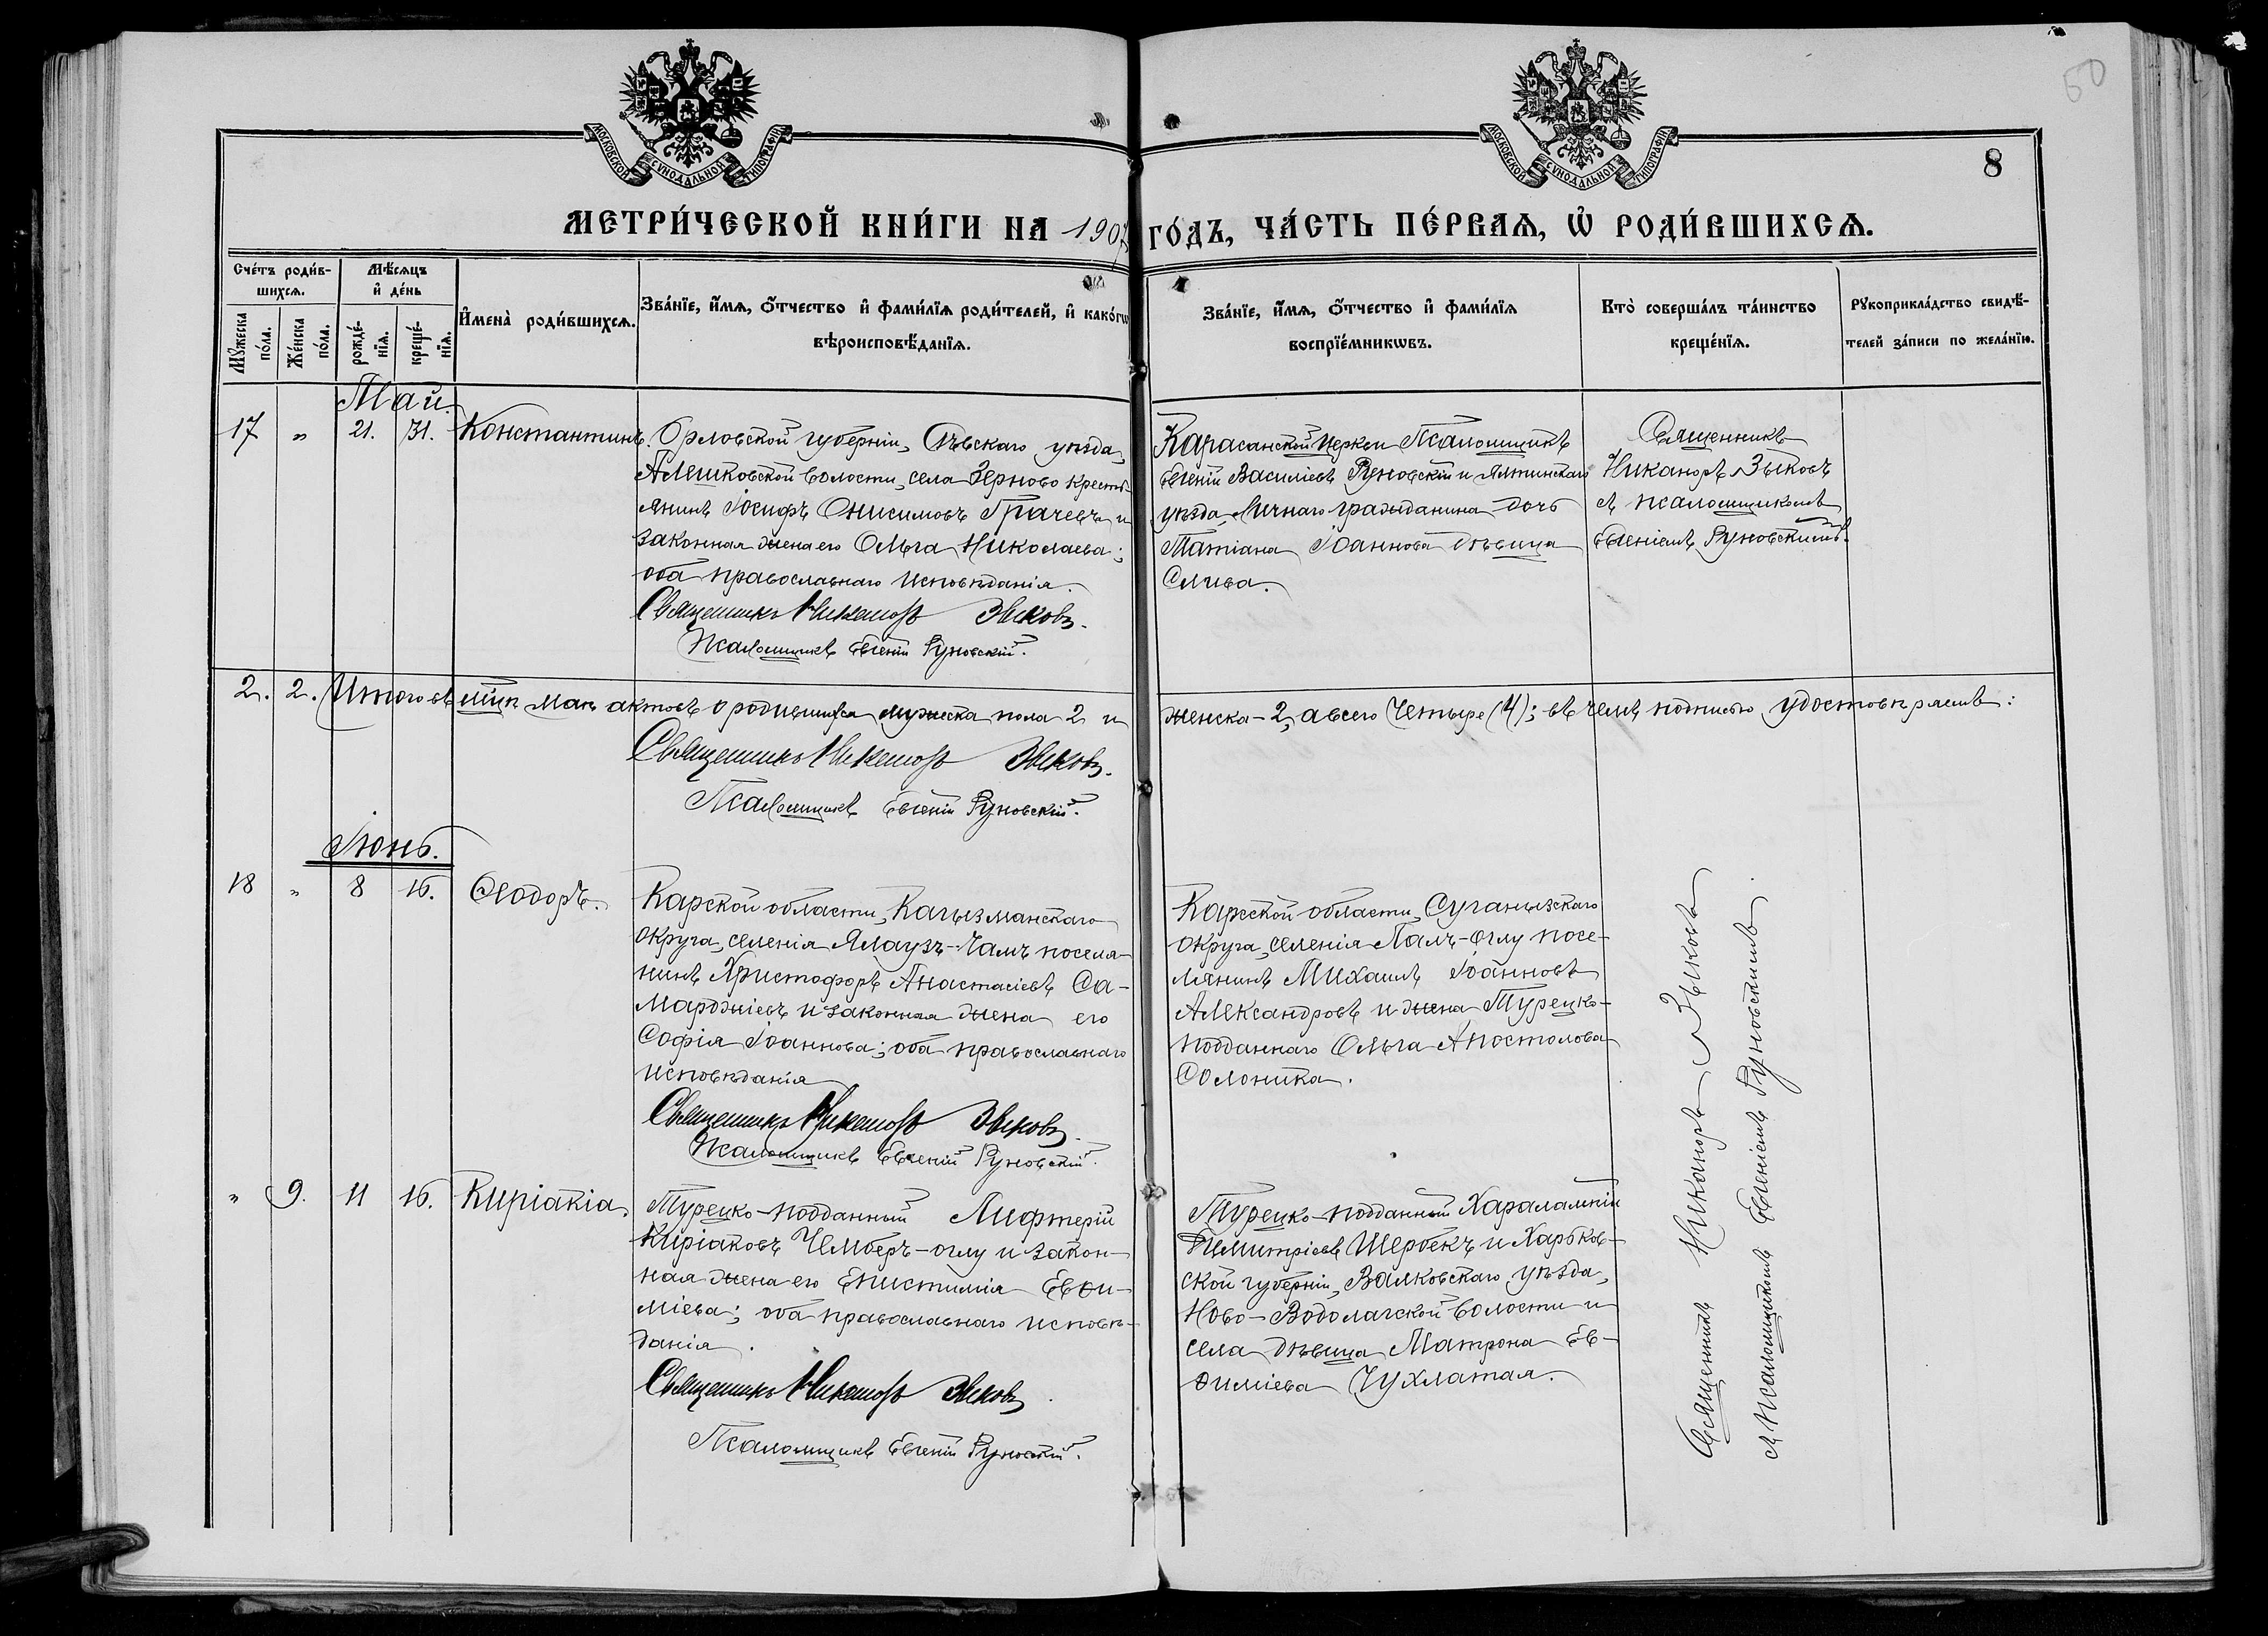 МОСКОВСКОЙ СУНОДАЛЬНОЙ ТИПОГРАФІИ
МОСКОВСКОЙ СУНОДАЛЬНОЙ ТИПОГРАФІИ
50
8
МЕТРИ́ЧЕСКОЙ КНИ́ГИ НА 1907 ГО́ДЪ, ЧА́СТЬ ПЕ́РВАѦ, Ѡ҆ РОДИ́ВШИХСѦ.
Сче́тъ роди́в-
шихсѧ.
Мѣ́сѧцъ
и҆ де́нь
Мꙋ́жеска по́ла.
Же́нска по́ла.
рожде́-нїѧ.
креще́-нїѧ.
И҆мена̀ роди́вшихсѧ.
Зва́нїе, и҆́мѧ, ѻ҆́тчество и҆ фами́лїѧ роди́телей, и҆ како́гѡ
вѣроисповѣ́данїѧ.
Зва́нїе, и҆́мѧ, ѻ҆́тчество и҆ фами́лїѧ
воспрїе́мникѡвъ.
Кто̀ соверша́лъ та́инство
креще́нїѧ.
Рꙋкоприкла́дство свидѣ́-
телей за́писи по жела́нїю.
Май.
17 " 21. 31. Константинъ.
Орловской губерніи, Сѣвскаго уѣзда,
Алешковской волости, села Зерново кресть-
янинъ Іосифъ Онисимовъ Грачевъ и
законная жена его Ольга Николаева;
оба православнаго исповѣданія.
Священникъ Никаноръ Зыковъ.
Псаломщикъ Евгеній Руновскій.
Карасанской церкви Псаломщикъ
Евгеній Василіевъ Руновскій и Ялтинскаго
уѣзда, личнаго гражданина дочь
Татіана Іоаннова дѣвица
Слива.
Священникъ
Никаноръ Зыковъ
съ псаломщикомъ
Евгеніемъ Руновскимъ.
2. 2. Итого въ мѣсяцѣ маѣ актовъ о родившихся мужеска пола 2 и
женска - 2, а всего четыре (4); въ чемъ подписью удостовѣряемъ:
Священникъ Никаноръ Зыковъ.
Псаломщикъ Евгеній Руновскій.
Іюнь.
18 " 8 16. Ѳеодоръ.
Карской области, Кагызманскаго
округа, селенія Ялаузъ-Чамъ поселя-
нинъ Христофоръ Анастасіевъ Са-
марджіевъ и законная жена его
Софія Іоаннова; оба православнаго
исповѣданія
Священникъ Никаноръ Зыковъ.
Псаломщикъ Евгеній Руновскій.
Карсской области,
округа, селенія посе-
лянинъ Михаилъ Іоанновъ
Александровъ и жена Турецко-
подданнаго Ольга Апостолова
Солоника.
" 9. 11 16. Киріакія.
Турецко-подданный Лифтерій
Киріаковъ Чемберъ-оглу и закон-
ная жена его Епистимія Евѳи-
міева; оба православнаго исповѣ-
данія.
Священникъ Никаноръ Зыковъ.
Псаломщикъ Евгеній Руновскій.
Турецко-подданный Харалампій
Димитріевъ Шербекъ и Харьков-
ской губерніи, Валковскаго уѣзда,
Ново-Водолагской волости и
села дѣвица Матрона Ев-
ѳиміева Чухлатая.
Священникъ Никаноръ Зыковъ
съ псаломщикомъ Евгеніемъ Руновскимъ.